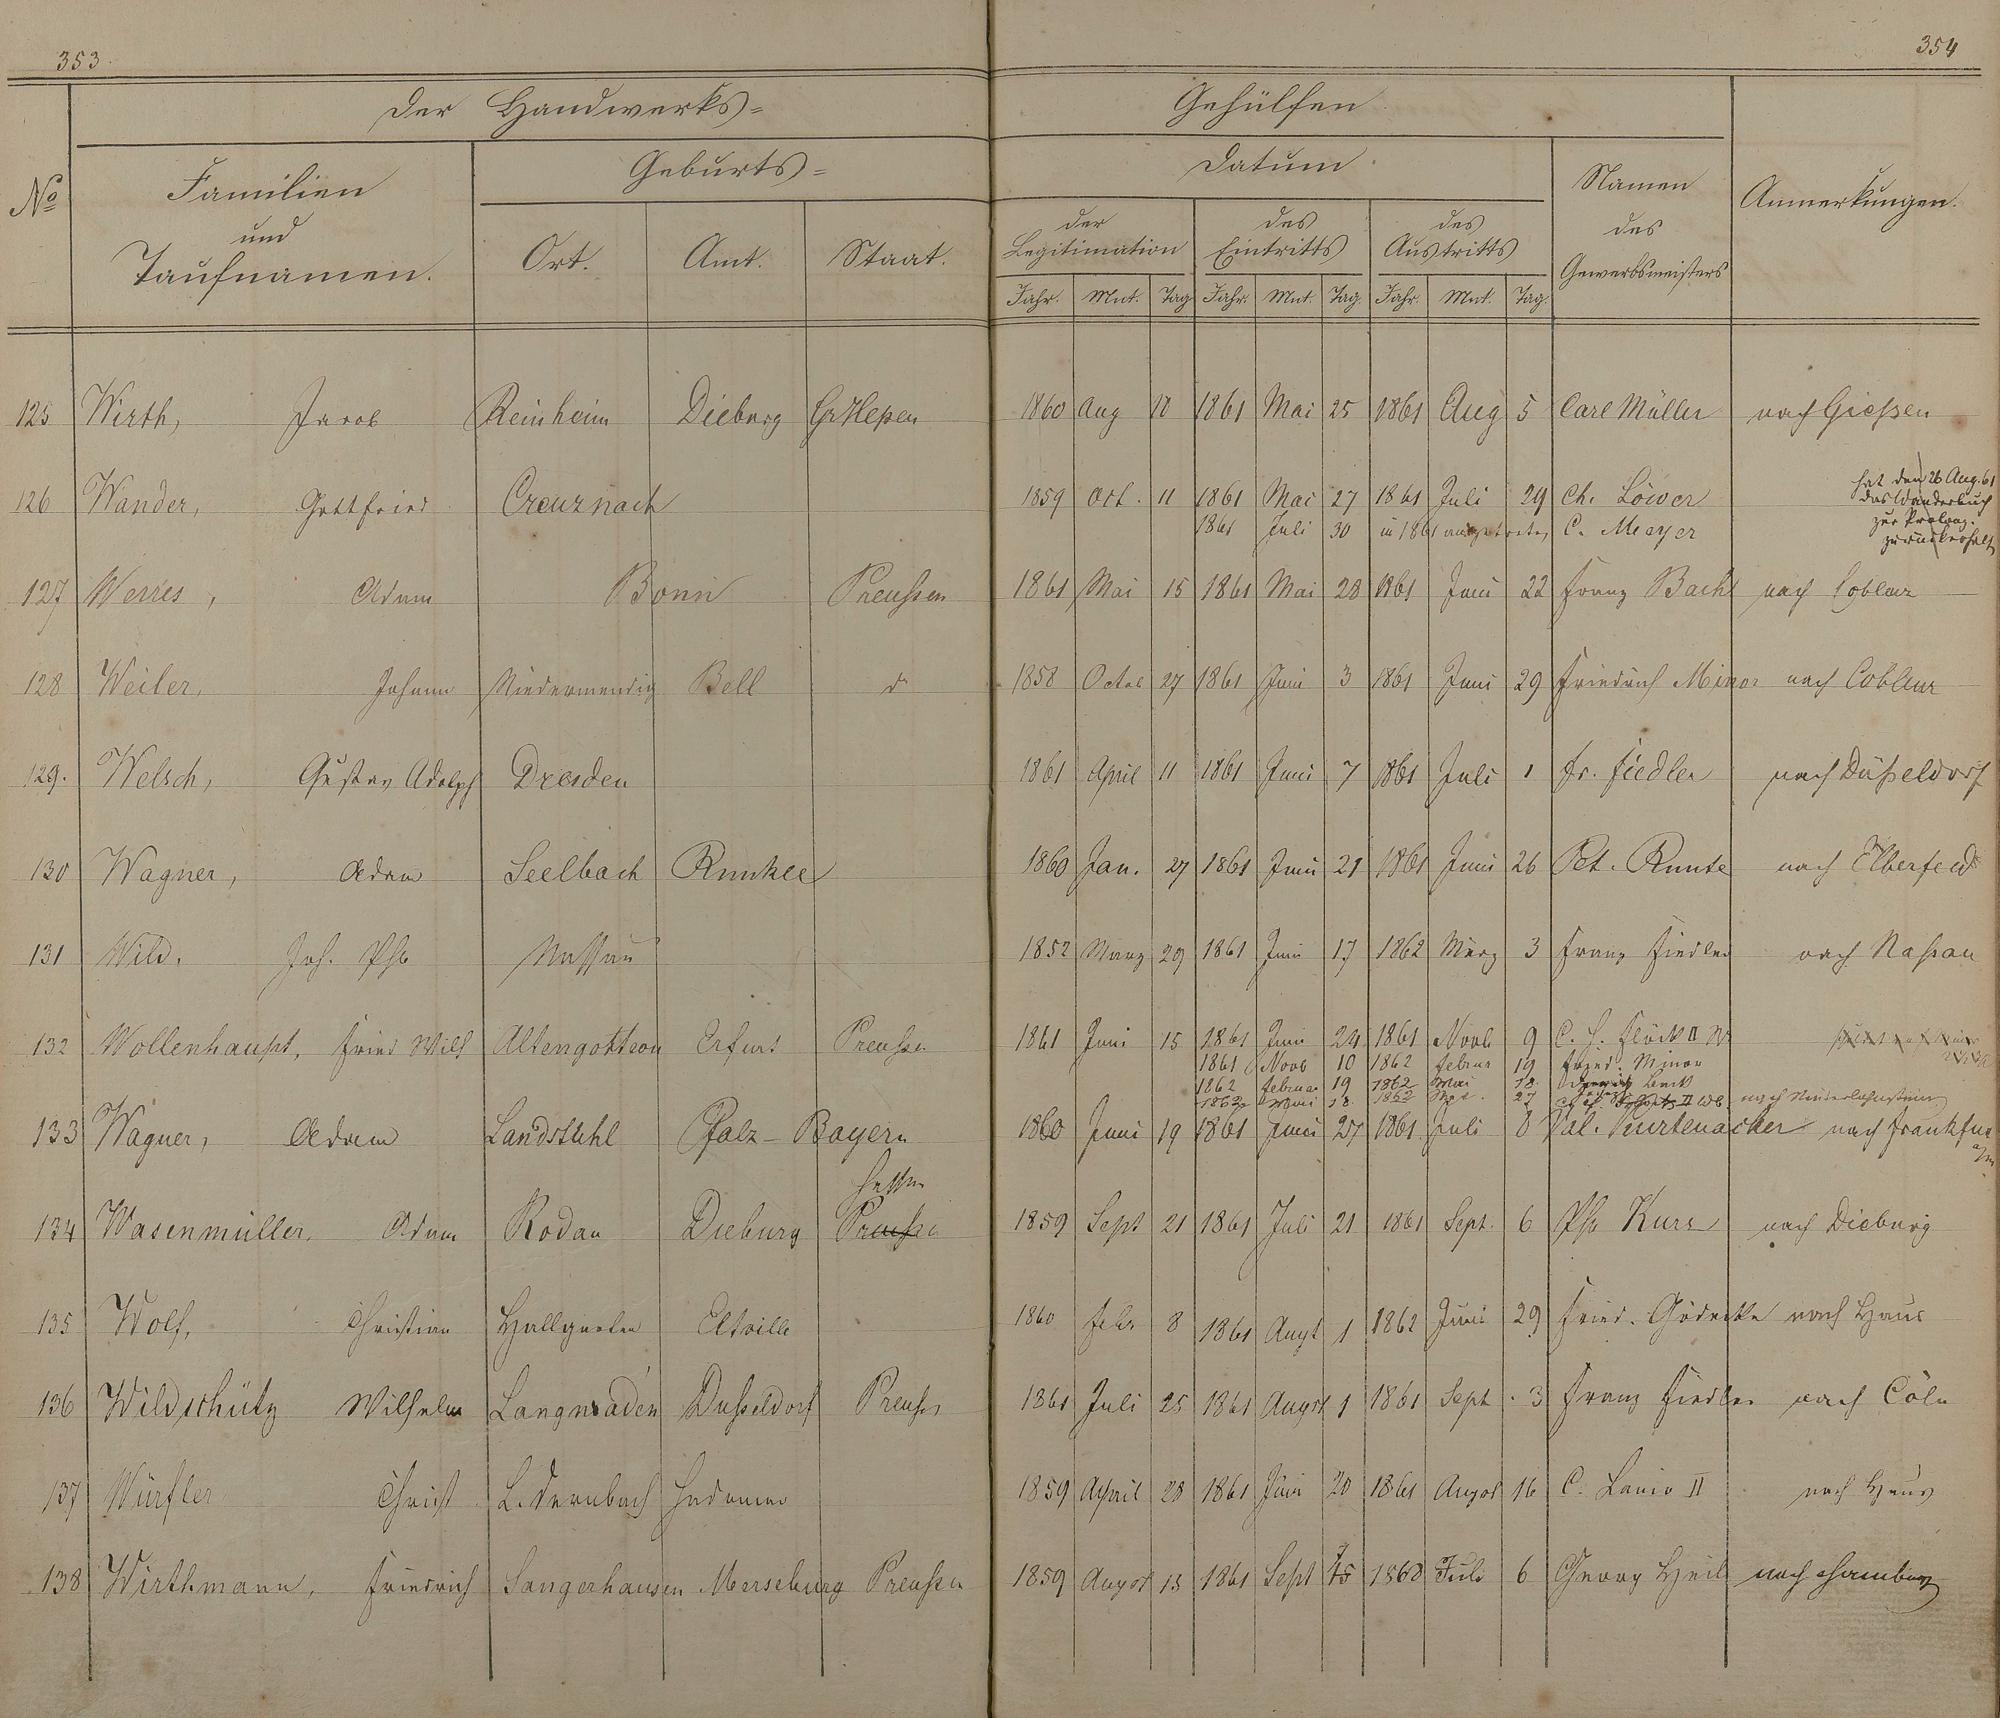 353
354
Der Handwerks=
Gehülfen
No
Familien
und
Taufnamen.
Geburts=
Ort.
Amt.
Staat.
Datum
der
Legitimation
des
Eintritts
des
Austritts
Jahr. Mnt. Tag Jahr. Mnt. Tag. Jahr. Mnt. Tag.
Namen
des
Gewerbsmeisters
Anmerkungen.
125 Wirth, Jacob Reinheim Dieburg GrHessen 1860 Aug 10 1861 Mai 25 1861 Aug 5 Carl Müller nach Giessen
126 Wander, Gottfried Creuznach 1859 Oct. 11 1861 Mai 27 1861 Juli 29 Ch. Löwer
1861 Juli 30 in 1861 ausgetreten C. Meyer
hat den 26 Aug. 61
das Wanderbuch
zur Prolong.
127 Werres, Adam Bonn Preußen 1861 Mai 15 1861 Mai 28 1861 Juni 22 Franz Bach nach Coblenz
128 Weiler, Johann Niedermendig Bell d 1858 Octob 27 1861 Juni 3 1861 Juni 29 Friedrich Minor nach Coblenz
129. Welsch, Gustav Adolph Dresden 1861 April 11 1861 Juni 7 1861 Juli 1 Fr. Fiedler nach Düßeldorf
130 Wagner, Adam Seelbach Runkel 1860 Jan. 27 1861 Juni 21 1861 Juni 26 Pet. Runte nach Elberfeld
131 Wild, Joh. Phil Nassau 1852 März 29 1861 Juni 17 1862 März 3 Franz Fiedler nach Naßau
132 Wollenhaupt, Fried Wilh Altengottern Erfurt Preußen 1861 Juni 15 1861 Juni 24 1861 Novb 9 C. H. Flück II W
1861 Novb 10 1862 Februar 19 Fried. Minor
1862 Februar 19 1862 Mai 18
1862 Mai 18 1862 27 nach Niederlahnstein
133 Wagner, Adam Landstuhl Pfalz-Bayern 1860 Juni 19 1861 Juni 27 1861 Juli 8 Val. Kurtenacker nach Frankfurt
a/m
Hessen
134 Wasenmüller, Adam Rodau Dieburg Preußen 1859 Sept 21 1861 Juli 21 1861 Sept. 6 Ph. Kurz nach Dieburg
135 Wolf, Christian Hallgarten Eltville 1860 Febr 8 1861 Augt 1 1862 Juni 29 Fried. Gödecke nach Haus
136 Wildschütz Wilhelm Langwaden Dusseldorf Preußen 1861 Juli 25 1861 August 1 1861 Sept. 3 Franz Fiedler nach Cöln
137 Würfler Christ L. Dernbach Hadamar 1859 April 28 1861 Juni 20 1861 August 16 C. II nach Haus
138 Wirthmann, Friedrich Sangerhausen Merseburg Preußen 1859 August 15 1861 Sept 1868 Juli 6 Georg Heil nach Hamburg